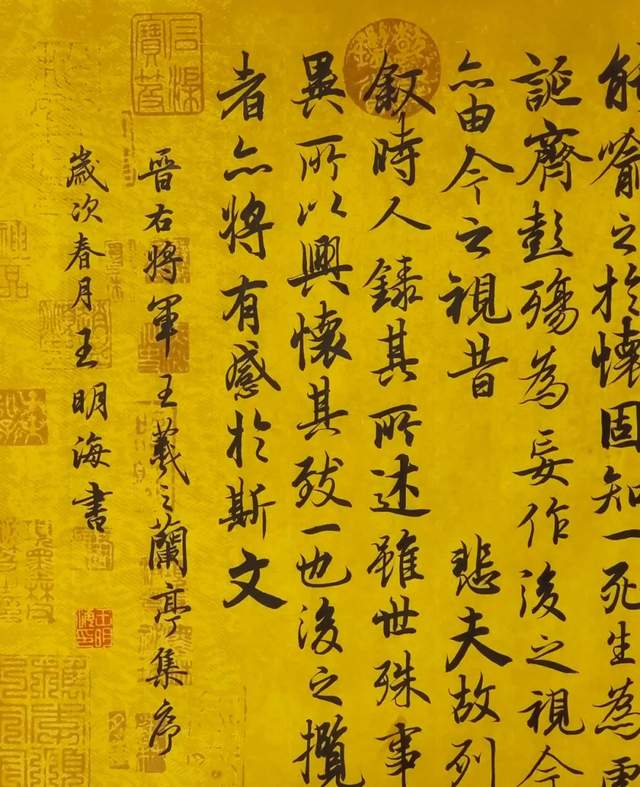 能喻之於懷固知一死生為虛
誕齊彭殤為妄作後之視今
亦由今之視昔 悲夫故列
叙時人錄其所述雖世殊事
異所以興懷其致一也後之攬
者亦將有感於斯文
晉右將軍王羲之蘭亭集序
歲次春月王明海書
石渠寶笈
王明海印